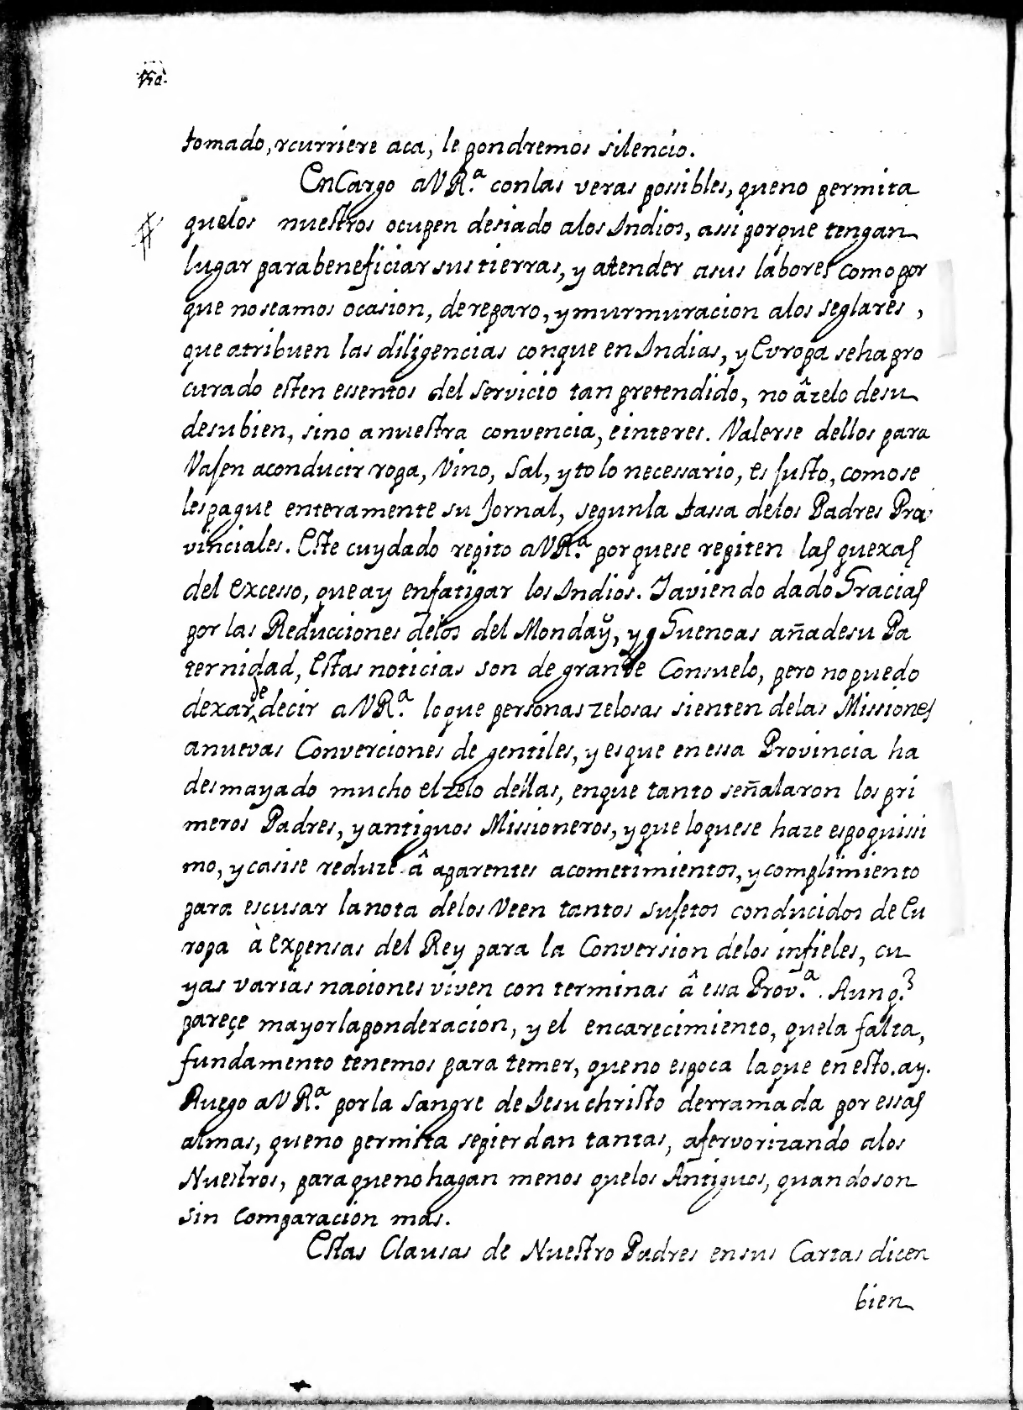 tomado, rcurriere aca, le pondremos silencio.
EnCargo aVR.ª conlas veras possibles, queno permita
quelos nuestros ocupen desiado alos Indios, assi porque tengan
lugar parabeneficiar sus tierras, y atender asus labores como por
que noseamos ocasion, dereparo, y murmuracion alos seglares,
que atribuen las diligencias conque en Indias, y Europa seha pro
curado esten essentos del servicio tan pretendido, no âzelo desu
desubien, sino anuestra convencia, e interes. Valerse dellos para
Vasen aconducir ropa, Vino, Sal, y to lo necessario, es justo, comose
lespague enteramente su Jornal, segunla tassa delos Padres Pro
vinciales. Este cuydado repito aVR.ª porquese repiten las quexas
del excesso, que ay enfatigar los Indios. Iaviendo dado Gracias
por las Reducciones delos del Monday, y Guenoas añadesu Pa
ternidad, Estas noticias son de grande Consuelo, pero no puedo
dexar de decir aVR.ª loque personas zelosas sienten delas Missiones
anuevas Converciones de gentiles, y esque en essa Provincia ha
desmayado mucho elzelo dellas, enque tanto señalaron los pri
meros Padres, y antiguos Missioneros, y que loquese haze espoquissi
mo, y casise reduze â aparentes acometimientos, y complimiento
para escusar lanota delos Veen tantos sujetos conducidos de Eu
ropa à expensas del Rey para la Conversion delos infieles, cu
yas varias naciones viven con terminas â essa Prov.ª. Aunq.ᵉ
pareçe mayor laponderacion, y el encarecimiento, quela falta,
fundamento tenemos para temer, queno espoca laque en esto. ay.
Ruego aVR.ª por la Sangre de Iesu christo derramada por essas
almas, queno permita sepierdan tantas, afervorizando alos
Nuestros, paraquenohagan menos quelos Antiguos, quandoson
sin Comparaciòn mas.
Estas Clausas de Nuestro Padres ensus Cartas dicen
bien